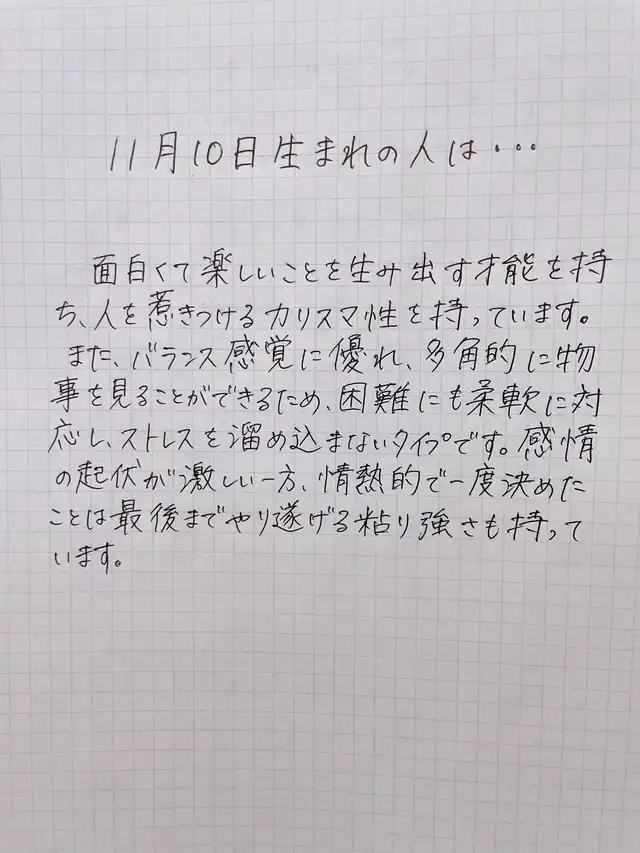 11月10日生まれの人は・・・
面白くて楽しいことを生み出す才能を持
ち、人を惹きつけるカリスマ性を持っています。
また、バランス感覚に優れ、多角的に物
事を見ることができるため、困難にも柔軟に対
応し、ストレスを溜め込まないタイプです。感情
の起伏が激しい一方、情熱的で一度決めた
ことは最後までやり遂げる粘り強さも持って
います。